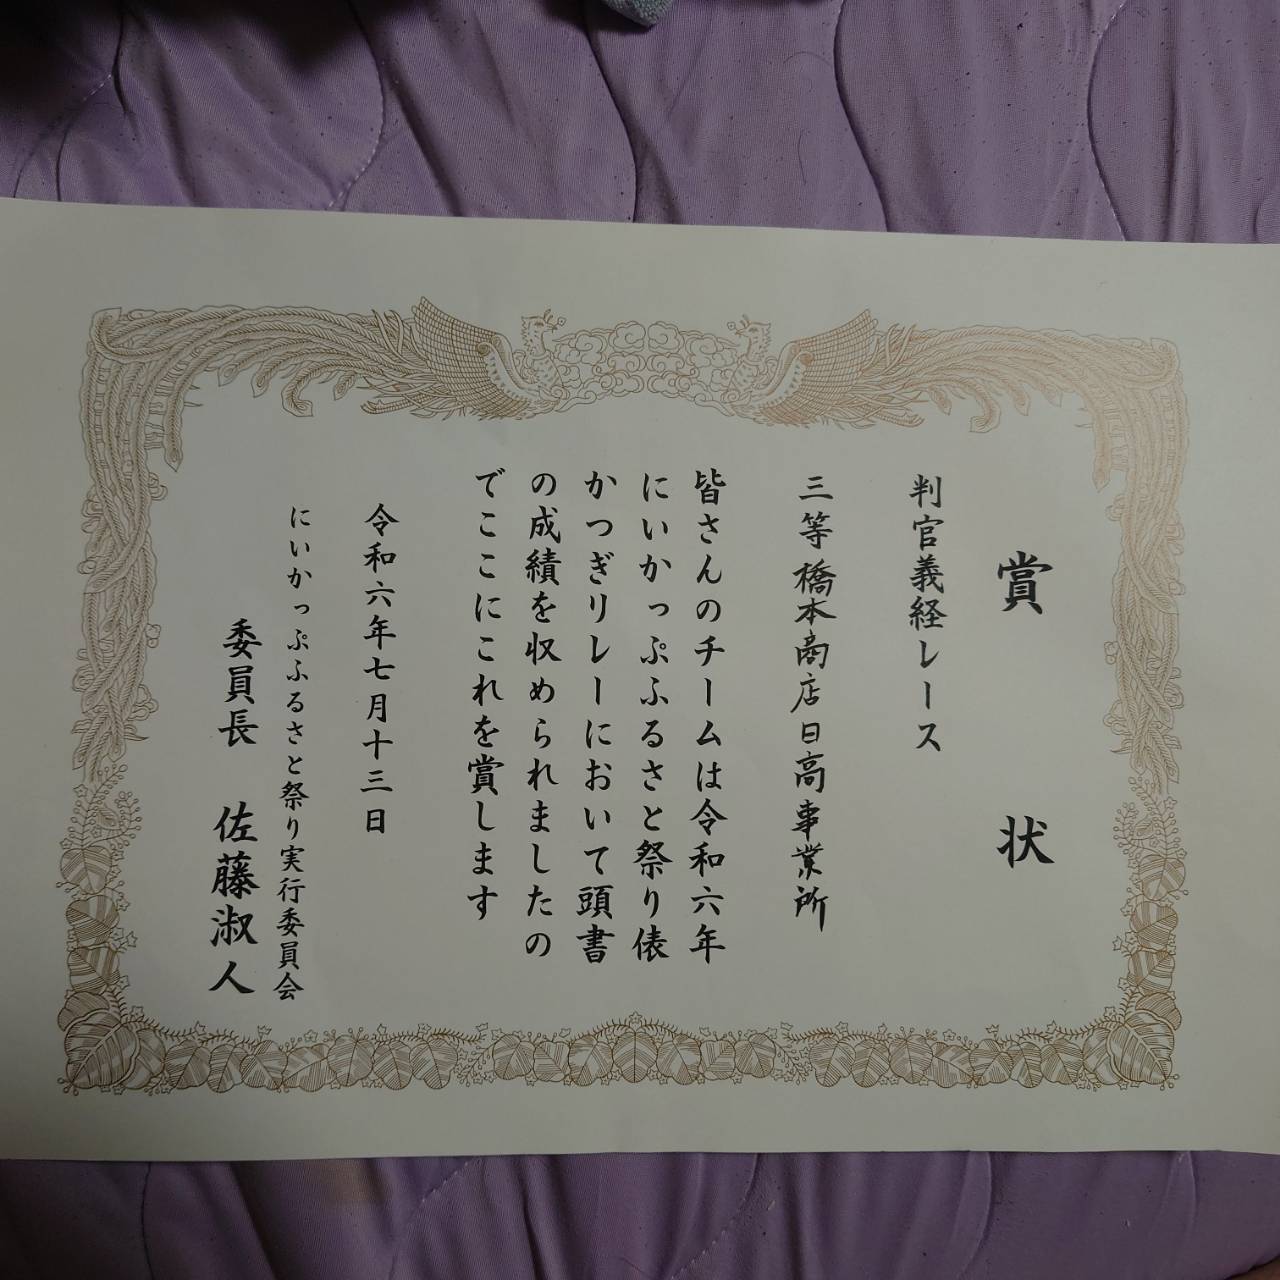 賞状
判官義経レース
三等 橋本商店日高事業所
皆さんのチームは令和六年
にいかっぷふるさと祭り俵
かつぎリレーにおいて頭書
の成績を収められましたの
でここにこれを賞します
令和六年七月十三日
にいかっぷふるさと祭り実行委員会
委員長 佐藤淑人